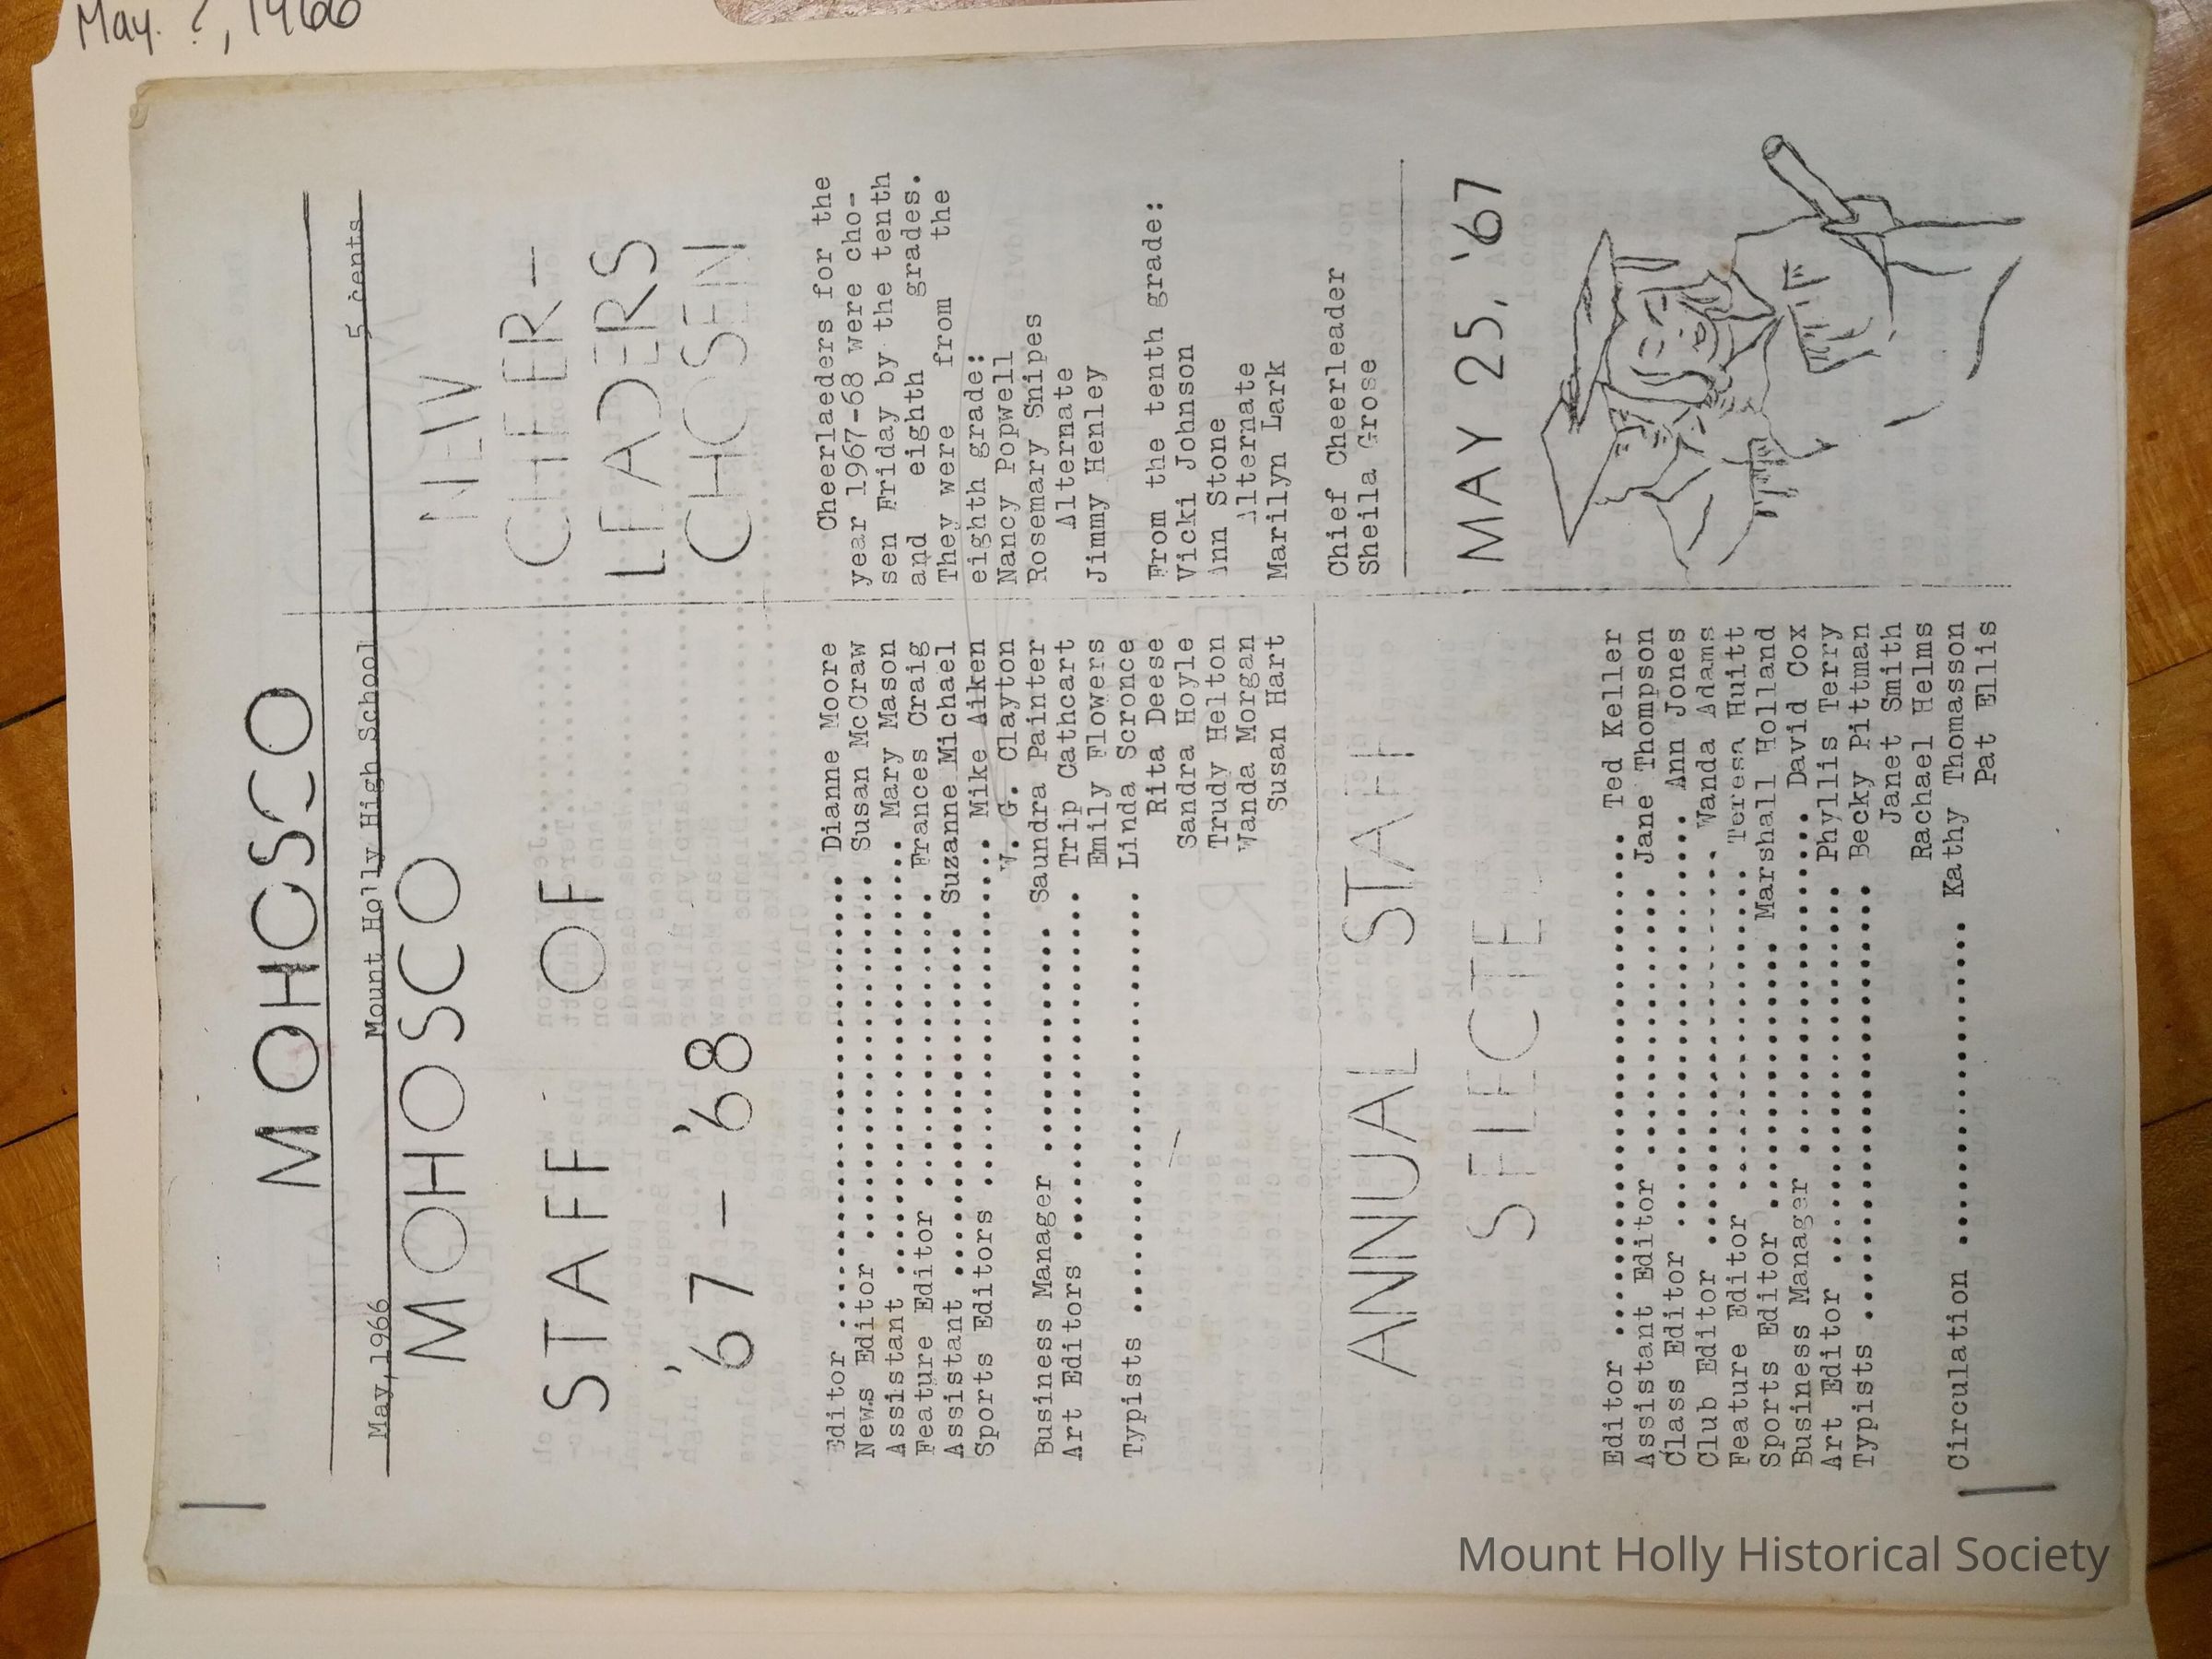 May. ?, 1966
MOHOSCO
May,1966 Mount Holly High School 5 cents
MOHOSCO
STAFF OF
'67 - '68
Editor .......................... Dianne Moore
News Editor ..................... Susan McCraw
Assistant ....................... Mary Mason
Feature Editor .................. Frances Craig
Assistant ....................... Suzanne Michael
Sports Editors .................. Mike Aiken
W. G. Clayton
Business Manager ............... Saundra Painter
Art Editors ..................... Trip Cathcart
Emily Flowers
Typists ......................... Linda Scronce
Rita Deese
Sandra Hoyle
Trudy Helton
Wanda Morgan
Susan Hart
ANNUAL STAFF
SELECTE
Editor .......................... Ted Keller
Assistant Editor ................ Jane Thompson
Class Editor .................... Ann Jones
Club Editor ..................... Wanda Adams
Feature Editor .................. Teresa Huitt
Sports Editor ................... Marshall Holland
Business Manager ................ David Cox
Art Editor ...................... Phyllis Terry
Typists ......................... Becky Pittman
Janet Smith
Rachael Helms
Circulation ..................... Kathy Thomasson
Pat Ellis
NEW
CHEER-
LEADERS
CHOSEN
Cheerlaeders for the
year 1967-68 were cho-
sen Friday by the tenth
and eighth grades.
They were from the
eighth ggrade:
Nancy Popwell
Rosemary Snipes
Alternate
Jimmy Henley
From the tenth grade:
Vicki Johnson
Ann Stone
Alternate
Marilyn Lark
Chief Cheerleader
Sheila Grose
MAY 25, '67
Mount Holly Historical Society